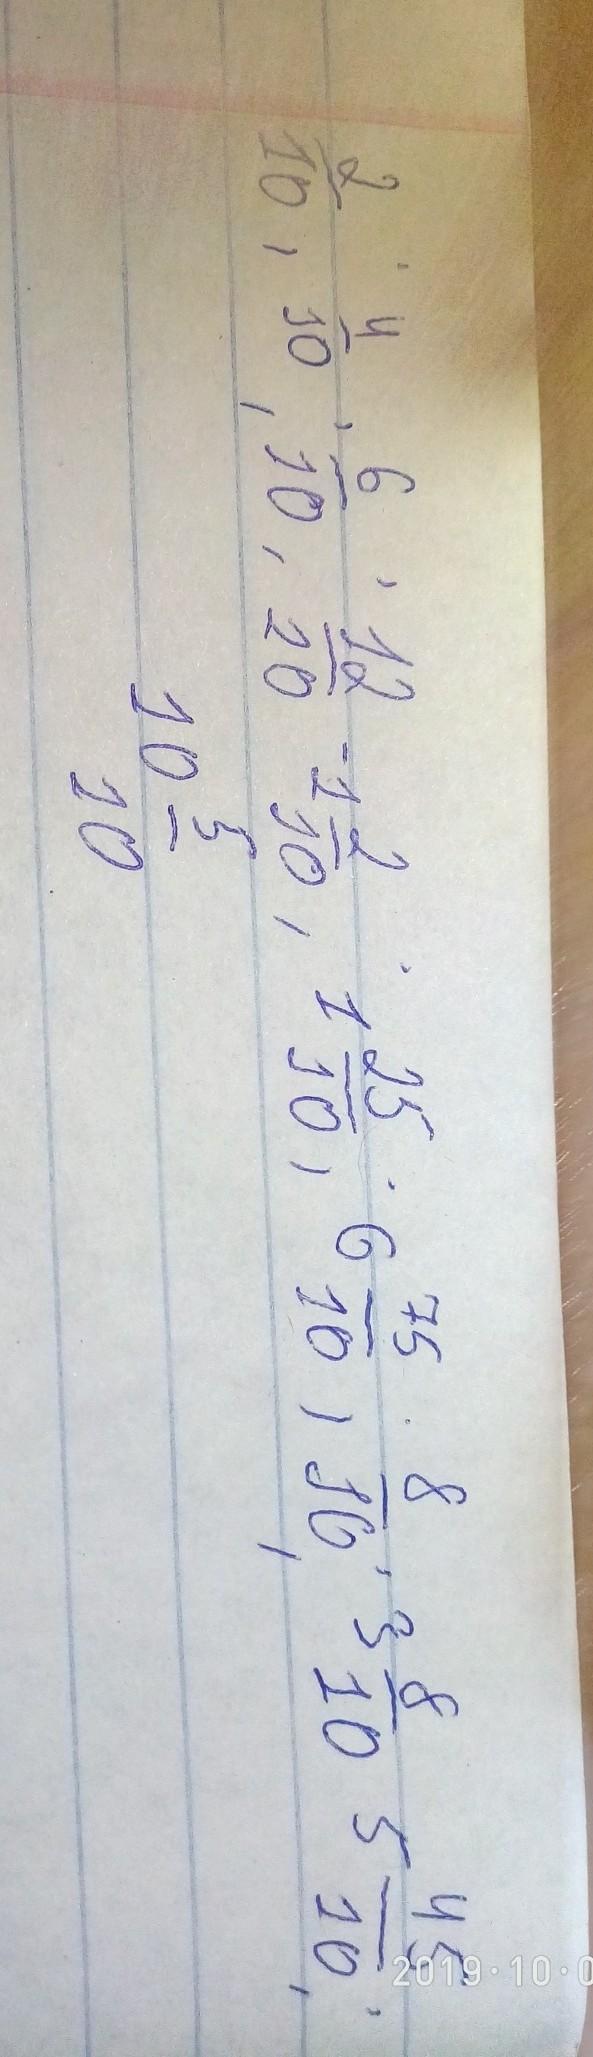 2/10, 4/10, 6/10, 12/20 1 2/10, 1 25/10, 6 75/10, 8/16, 3 8/10 5 45/10,
10 5/10
2019·10·0